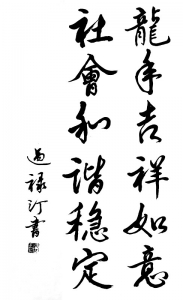 龍年吉祥如意
社會和谐穩定
過禄汀書